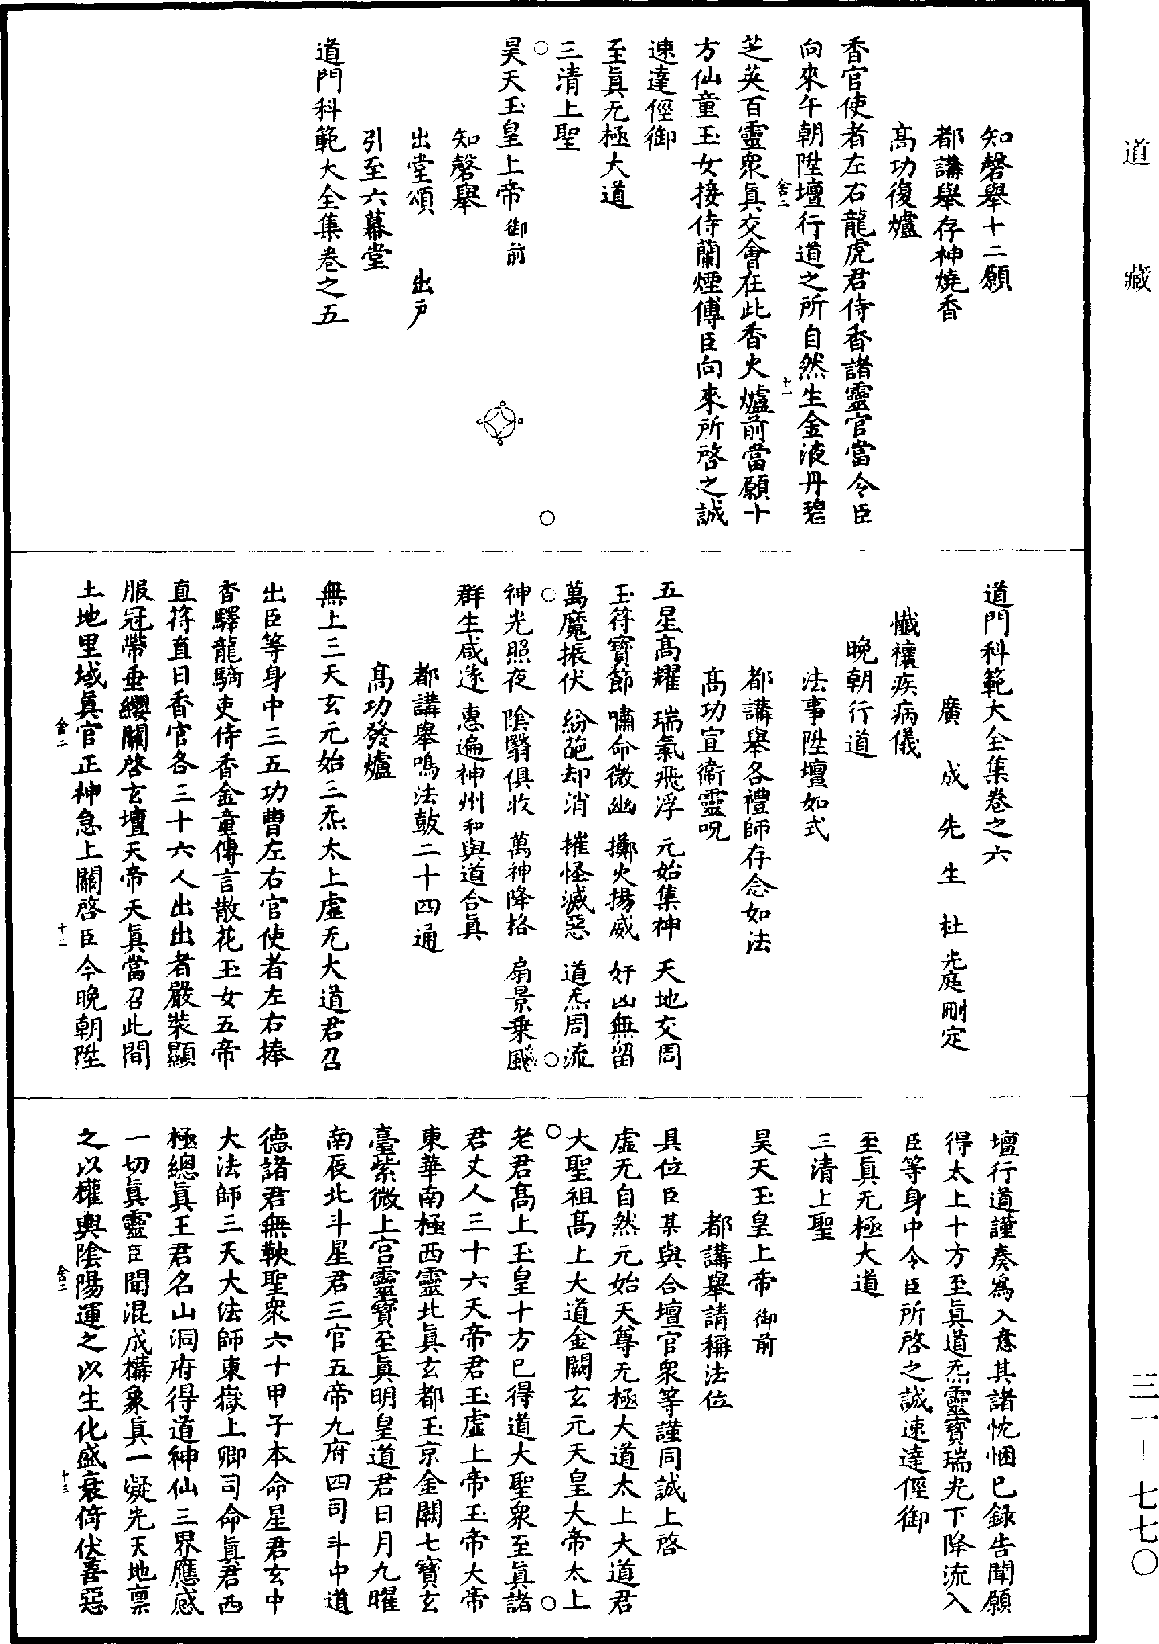 道藏
知磬舉十二願
都講舉存神燒香
高功復爐
香官使者左右龍虎君侍香諸靈官當令臣
向來午朝陞壇行道之所自然生金液丹碧
芝英百靈衆眞交會在此香火爐前當願十
方仙童玉女接侍蘭煙傅臣向來所啓之誠
速達徑御
至眞无極大道
三清上聖
昊天玉皇上帝御前
知磬舉
出堂頌 出戶
引至六幕堂
道門科範大全集卷之五
道門科範大全集卷之六
廣成先生杜光庭刪定
懺禳疾病儀
晚朝行道
法事陞壇如式
都講舉各禮師存念如法
高功宣衞靈呪
五星高耀 瑞氣飛浮 元始集神 天地交周
玉符寶節 嘯命微幽 擲火揚威 奸凶無留
萬魔振伏 紛葩却消 摧怪滅惡 道炁周流
神光照夜 陰翳俱收 萬神降格 扇景乗飈
群生咸遂 惠遍神州 和與道合眞
都講舉鳴法鼓二十四通
高功發爐
無上三天玄元始三炁太上虛无大道君召
出臣等身中三五功曹左右官使者左右捧
香驛龍騎吏侍香金童傳言散花玉女五帝
直符直日香官各三十六人出出者嚴裝顯
服冠帶垂纓關啓玄壇天帝天眞當召此間
土地里域眞官正神急上關啓臣今晚朝陞
壇行道謹奏爲入意其諸忱悃已錄告聞願
得太上十方至眞道炁靈寶瑞光下降流入
臣等身中令臣所啓之誠速達徑御
至眞无極大道
三清上聖
昊天玉皇上帝御前
都講舉請稱法位
具位臣某與合壇官衆等謹同誠上啓
虛无自然元始天尊无極大道太上大道君
大聖祖高上大道金闕玄元天皇大帝太上
老君高上玉皇十方已得道大聖衆至眞諸
君丈人三十六天帝君玉虛上帝玉帝大帝
東華南極西靈北眞玄都玉京金闕七寶玄
臺紫微上宮靈寶至眞明皇道君日月九曜
南辰北斗星君三官五帝九府四司斗中道
德諸君無鞅聖衆六十甲子本命星君玄中
大法師三天大法師東嶽上卿司命眞君西
極總眞王君名山洞府得道神仙三界應感
一切眞靈臣聞混成構象眞一凝先天地禀
之以權輿陰陽運之以生化盛衰倚伏善惡
三一—七七〇